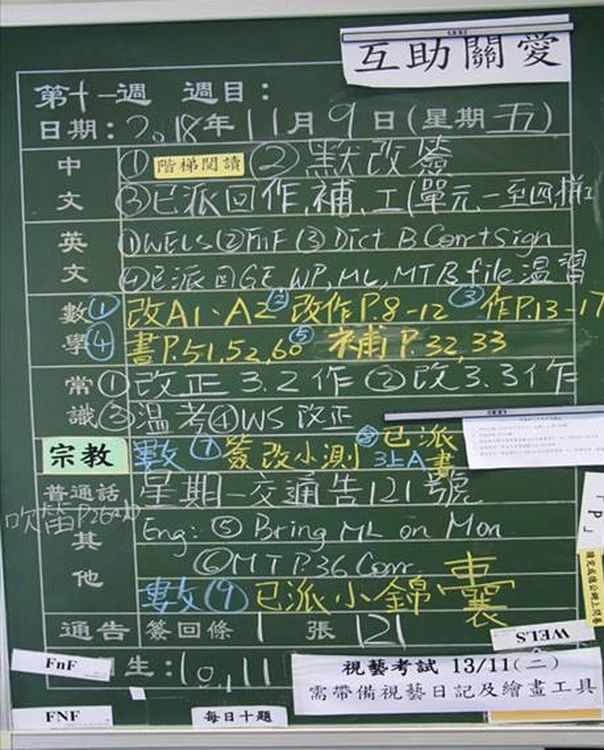 互助關愛
第十一週 週目：
日期：2018年11月9日(星期五)
中文 ① 階梯閱讀 ② 默改簽
③已派回作、補、工(單元一至四
英文 ①WELS ②FnF ③ Dict B Corr+Sign
④已派回GE, WP, ML, MTB file 溫習
數學 ① 改A1、A2 ② 改作P.8-12 ③ 作P.13-17
④ 書P.51,52,60 ⑤ 補P.32,33
常識 ① 改正3.2作 ② 改3.3作
③溫考④WS 改正
宗教 數 ⑦ 簽改小測 ⑧已派
3上A書
普通話 星期一交通告121號
吹笛
其他 Eng: ⑤ Bring ML on Mon
⑥MT P.36 Corr
數 ⑨ 已派小錦囊
「P」
通告 簽回條 1 張 121
WELS
FnF
生：10,11
視藝考試 13/11(二)
需帶備視藝日記及繪畫工具
FNF
每日十題